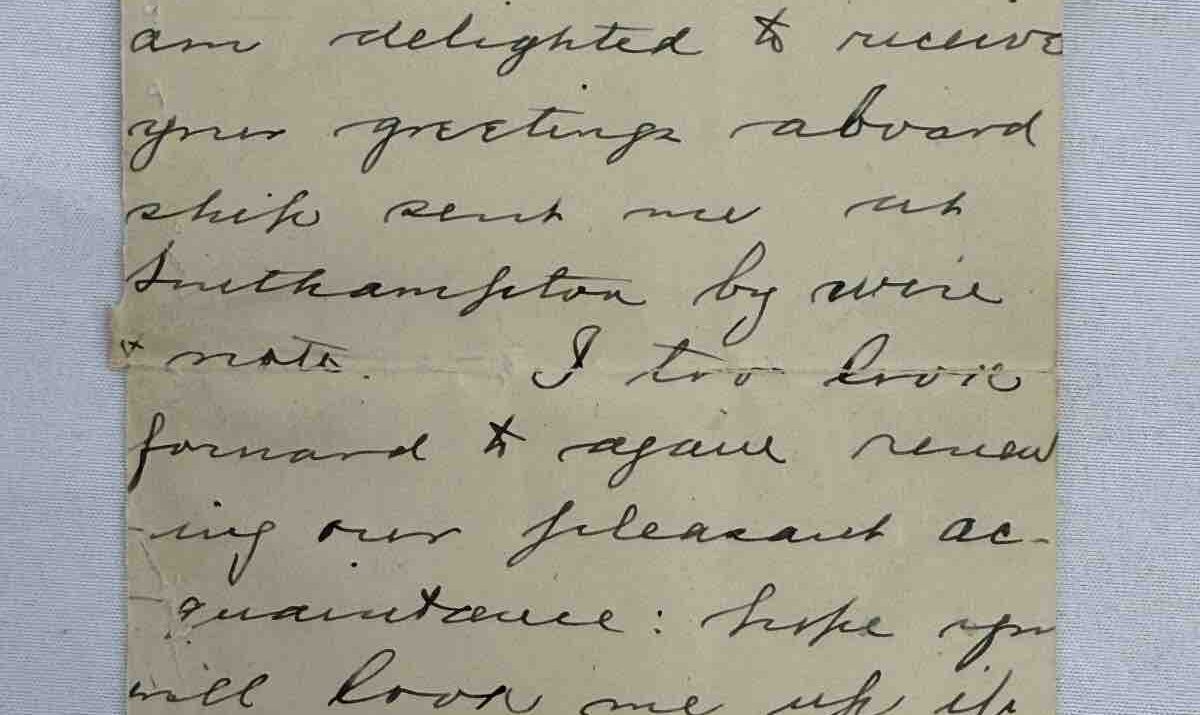 am delighted to receive
your greetings aboard
ship sent me at
Southampton by wire
& note. I too look
forward to again renew
-ing our pleasant ac-
-quaintance: hope you
will look me up if